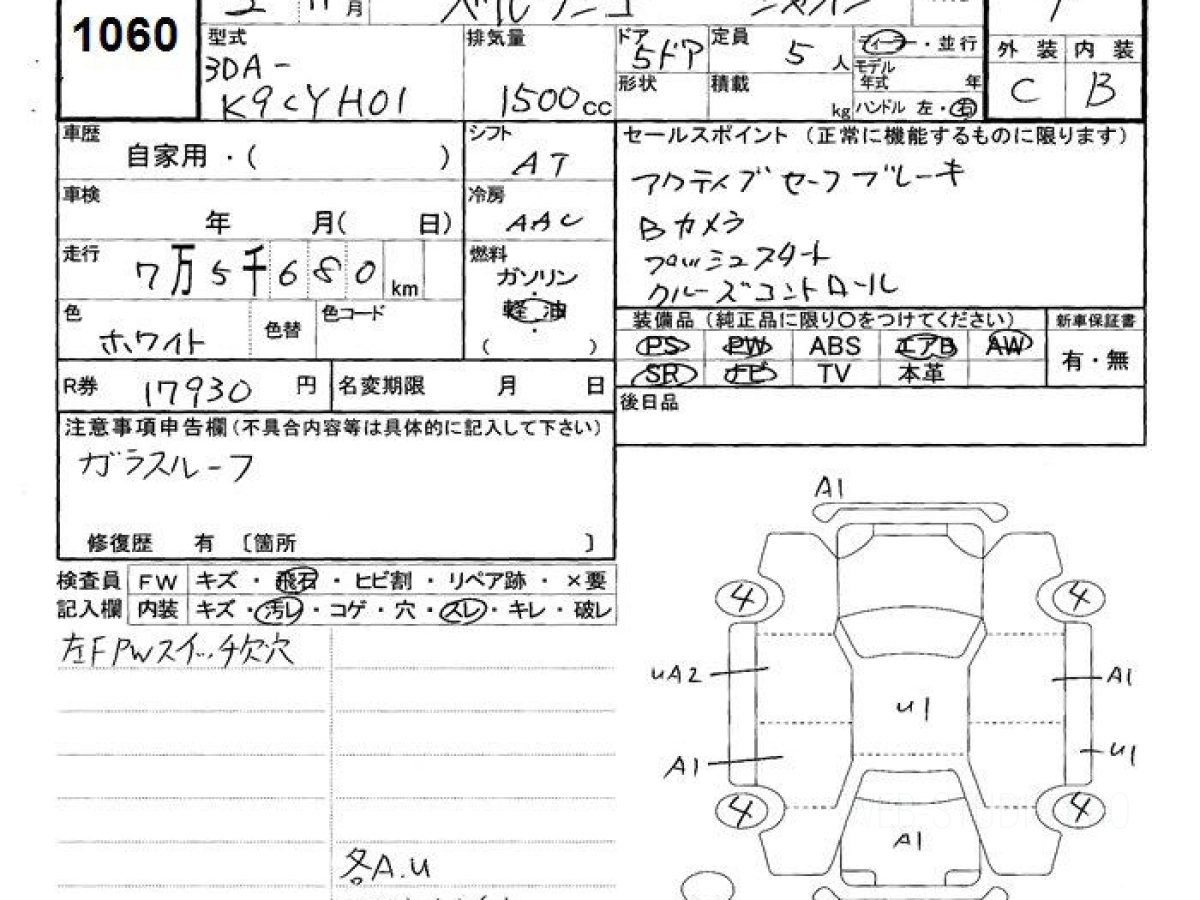 1060
月
型式
3DA-
K9CYH01
排気量
1500cc
ドア
5ドア
形状
定員
5人
積載
kg
ディーラー・並行
モデル
年式 年
ハンドル 左・右
外装 内装
C B
車歴
自家用・( )
シフト
AT
車検
年 月( 日)
冷房
AAC
走行
7万5千680km
燃料
ガソリン
・
軽油
・
( )
色
ホワイト
色替
色コード
R券 17930円
名変期限 月 日
セールスポイント (正常に機能するものに限ります)
アクティブセーフブレーキ
Bカメラ
プッシュスタート
クルーズコントロール
装備品 (純正品に限り○をつけてください)
新車保証書
PS PW ABS エアB AW
有・無
SR ナビ TV 本革
後日品
注意事項申告欄(不具合内容等は具体的に記入して下さい)
ガラスルーフ
修復歴 有 〔箇所 〕
検査員 FW キズ・飛石・ヒビ割・リペア跡・×要
記入欄 内装 キズ・汚レ・コゲ・穴・スレ・キレ・破レ
左F PWスイッチ欠穴
各A.U
A1
4 4
UA2 A1
U1
A1 U1
4 4
A1